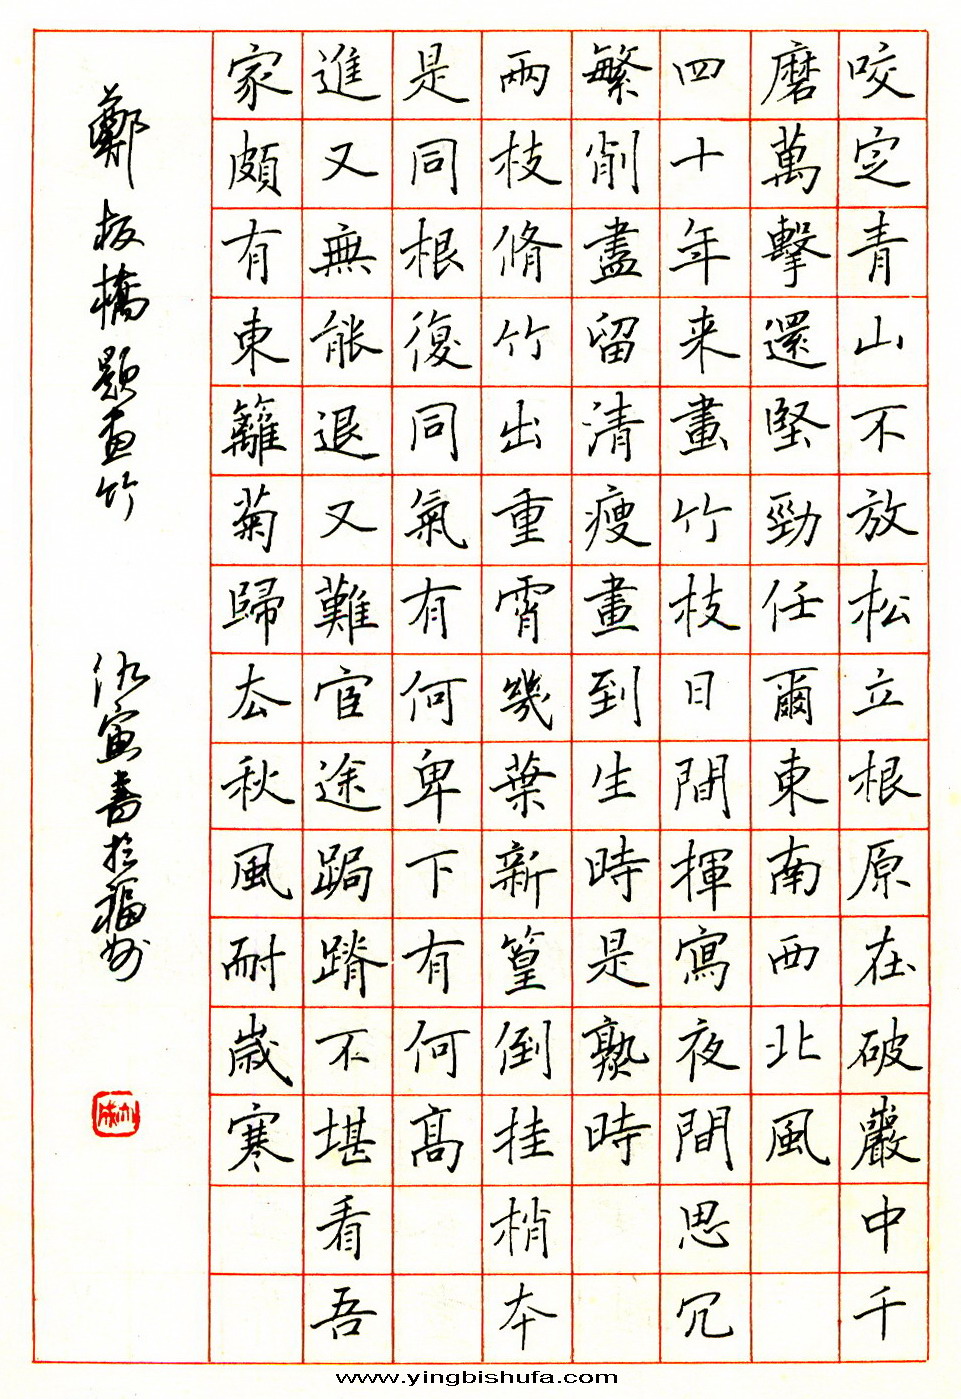 咬定青山不放松立根原在破巖中千
磨萬擊還堅勁任爾東南西北風
四十年来畫竹枝日間揮寫夜間思冗
繁削盡留清瘦畫到生時是熟時
兩枝脩竹出重霄幾葉新篁倒挂梢本
是同根復同氣有何卑下有何高
進又無能退又難宦途跼蹐不堪看吾
家頗有東籬菊歸去秋風耐歲寒
鄭板橋題畫竹 仇寅書於福州
www.yingbishufa.com